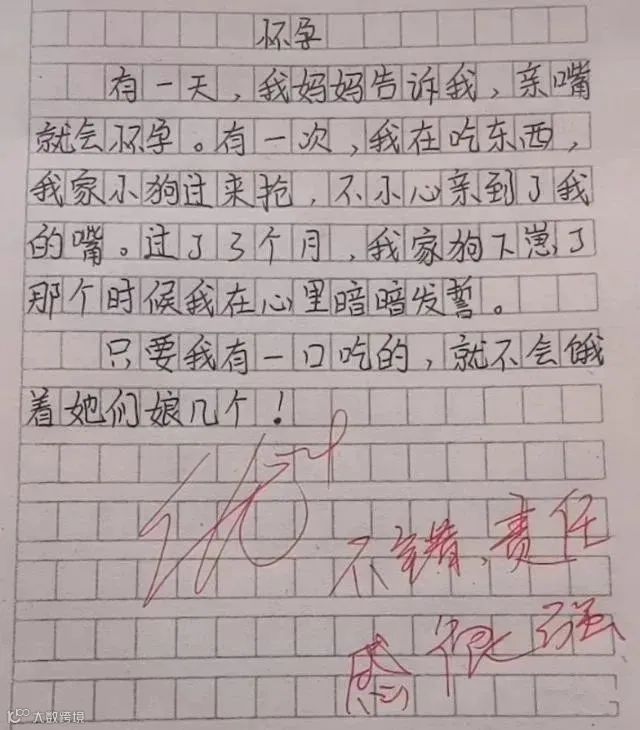 怀孕
有一天，我妈妈告诉我，亲嘴
就会怀孕。有一次，我在吃东西，
我家小狗过来抢，不小心亲到了我
的嘴。过了3个月，我家狗下崽了
那个时候我在心里暗暗发誓。
只要我有一口吃的，就不会饿
着她们娘几个！
不错，责任
感很强
大数跨境